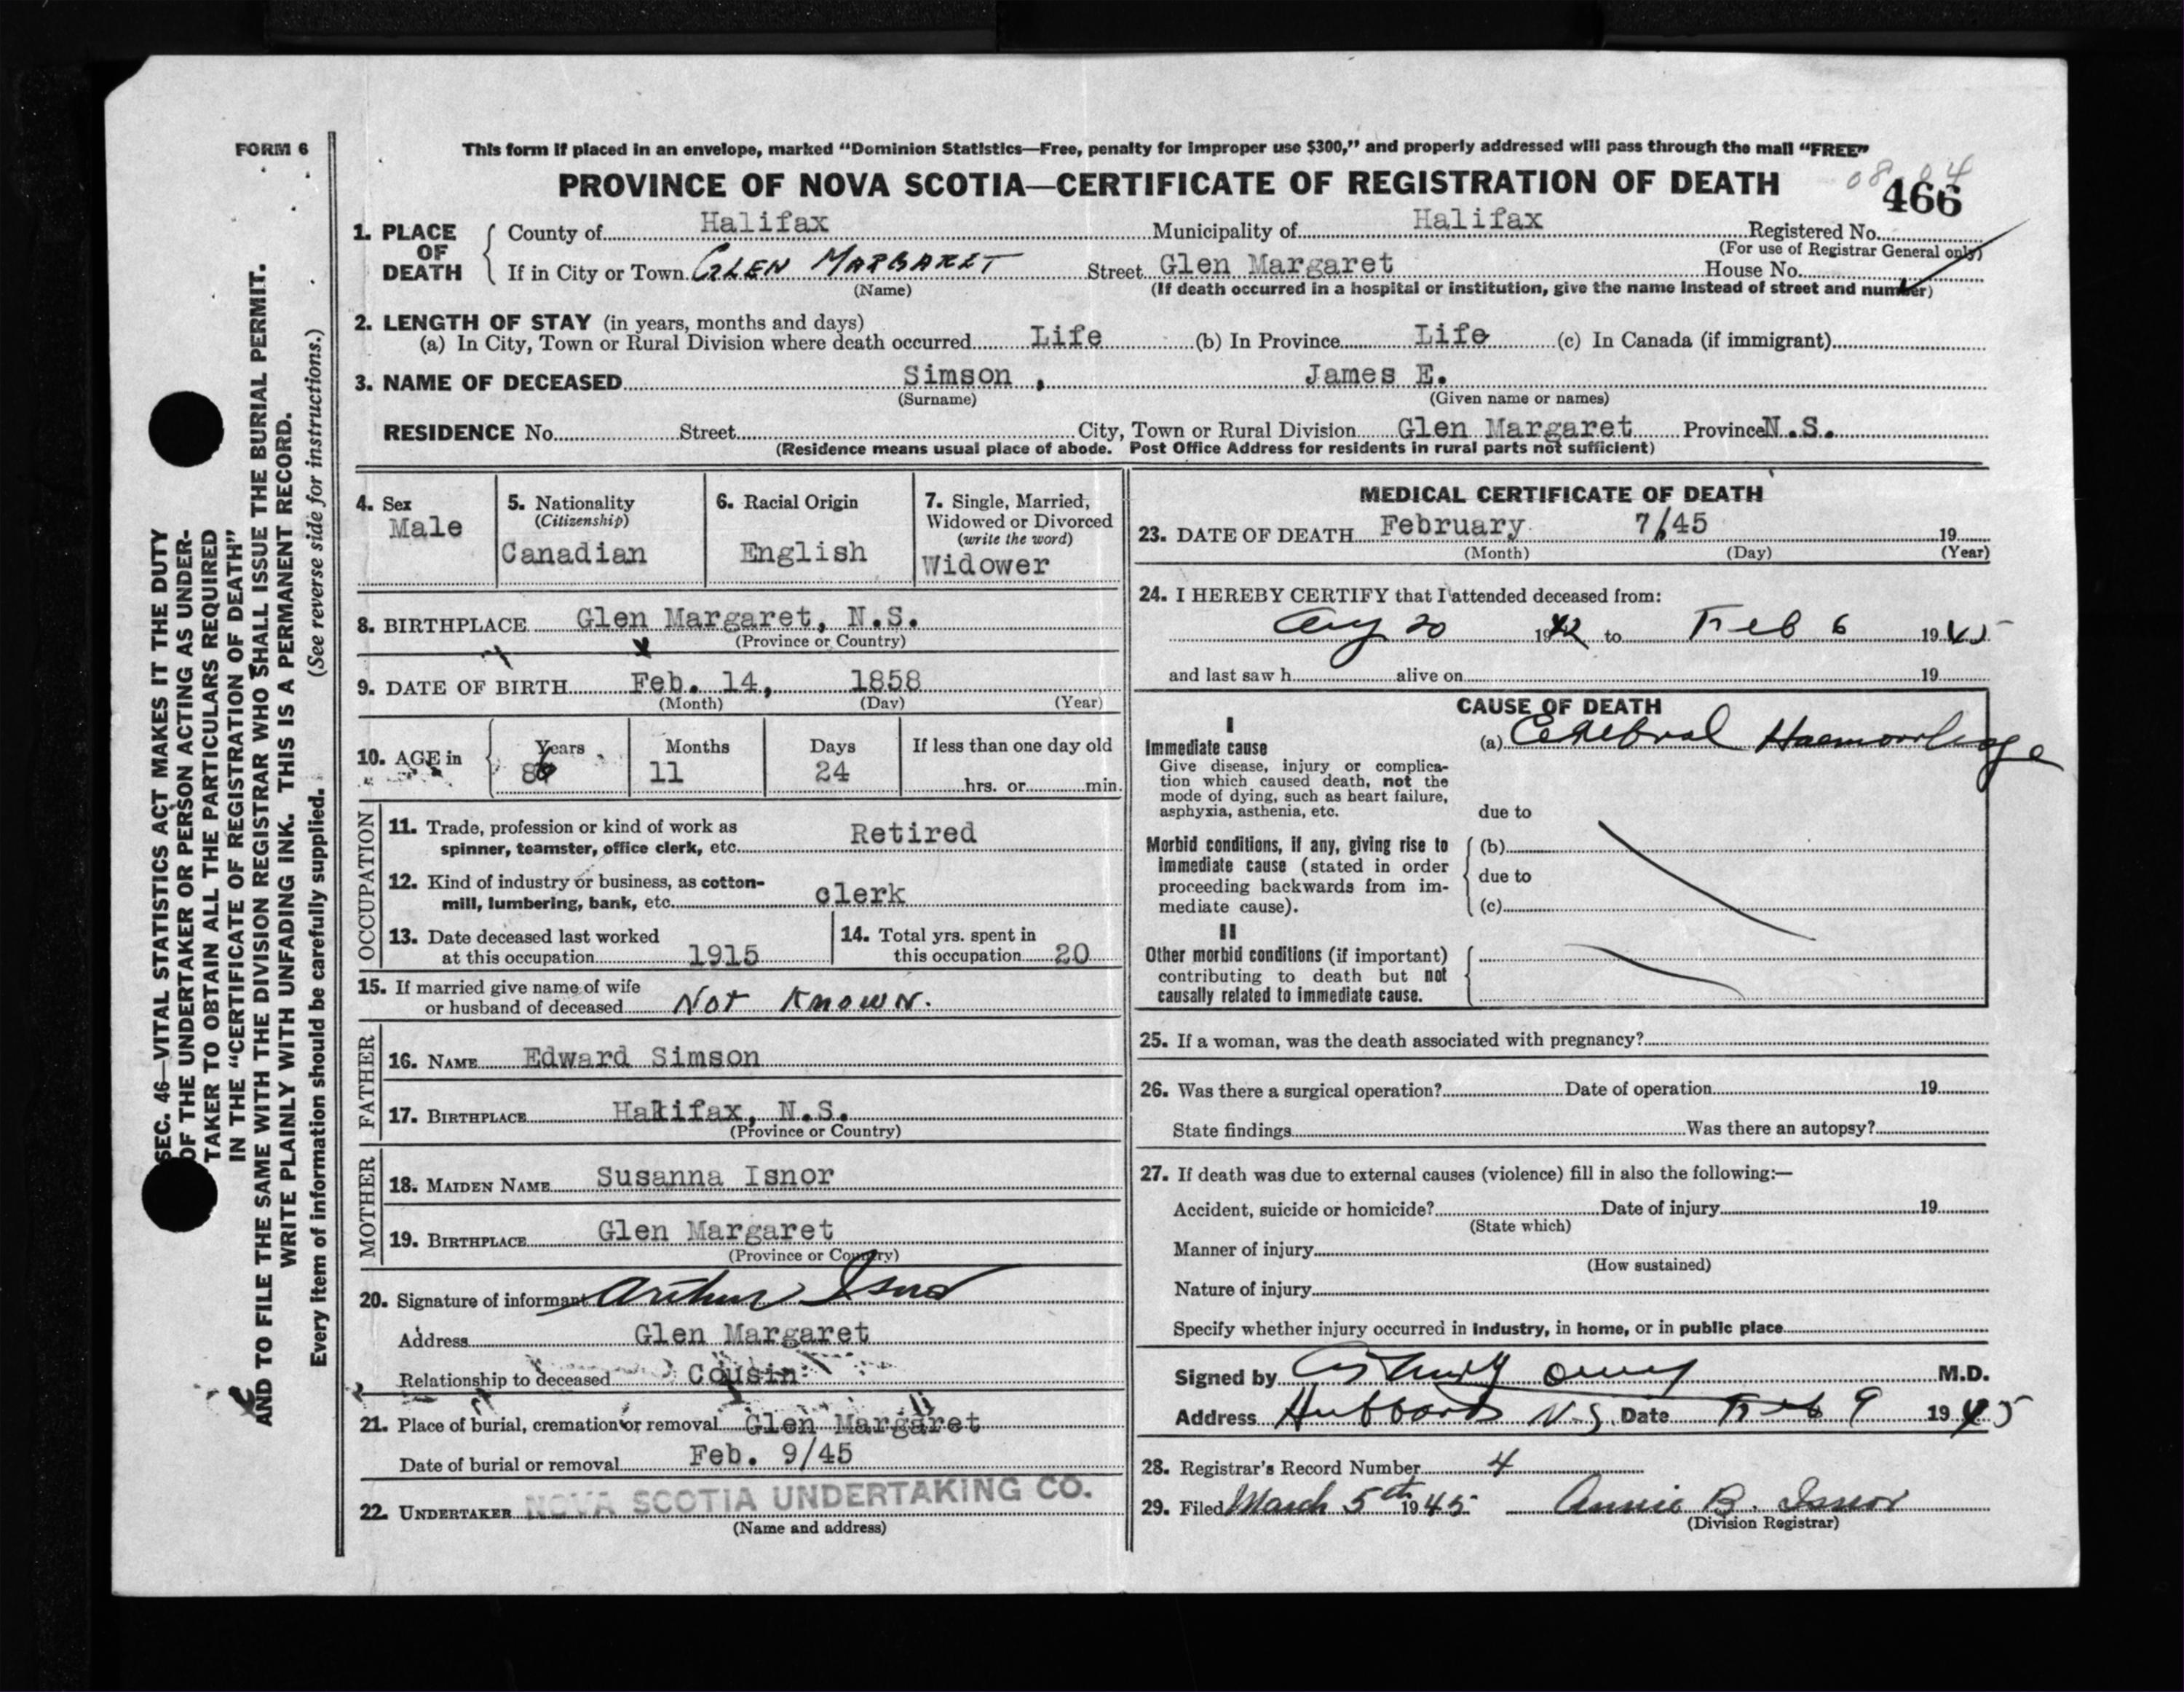 FORM 6
This form if placed in an envelope, marked "Dominion Statistics—Free, penalty for improper use $300," and properly addressed will pass through the mail "FREE"
PROVINCE OF NOVA SCOTIA—CERTIFICATE OF REGISTRATION OF DEATH
466
1. PLACE OF DEATH
County of Halifax Municipality of Halifax Registered No.
(For use of Registrar General only)
If in City or Town GLEN MARGARET Street Glen Margaret House No.
(Name) (If death occurred in a hospital or institution, give the name instead of street and number)
2. LENGTH OF STAY (in years, months and days)
(a) In City, Town or Rural Division where death occurred Life (b) In Province Life (c) In Canada (if immigrant)
3. NAME OF DECEASED Simson , James E.
(Surname) (Given name or names)
RESIDENCE No. Street City, Town or Rural Division Glen Margaret Province N.S.
(Residence means usual place of abode. Post Office Address for residents in rural parts not sufficient)
4. Sex
Male
5. Nationality
(Citizenship)
Canadian
6. Racial Origin
English
7. Single, Married,
Widowed or Divorced
(write the word)
Widower
8. BIRTHPLACE Glen Margaret, N.S.
(Province or Country)
9. DATE OF BIRTH Feb. 14, 1858
(Month) (Day) (Year)
10. AGE in
Years
86
Months
11
Days
24
If less than one day old
hrs. or min.
OCCUPATION
11. Trade, profession or kind of work as
spinner, teamster, office clerk, etc. Retired
12. Kind of industry or business, as cotton-
mill, lumbering, bank, etc. clerk
13. Date deceased last worked
at this occupation 1915
14. Total yrs. spent in
this occupation 20
15. If married give name of wife
or husband of deceased Not Known.
FATHER
16. NAME Edward Simson
17. BIRTHPLACE Halifax, N.S.
(Province or Country)
MOTHER
18. MAIDEN NAME Susanna Isnor
19. BIRTHPLACE Glen Margaret
(Province or Country)
20. Signature of informant Arthur Isnor
Address Glen Margaret
Relationship to deceased Cousin
21. Place of burial, cremation or removal Glen Margaret
Date of burial or removal Feb. 9/45
22. UNDERTAKER NOVA SCOTIA UNDERTAKING CO.
(Name and address)
MEDICAL CERTIFICATE OF DEATH
23. DATE OF DEATH February 7/45 19
(Month) (Day) (Year)
24. I HEREBY CERTIFY that I attended deceased from:
Aug 20 1942 to Feb 6 1945
and last saw h alive on 19
CAUSE OF DEATH
I
Immediate cause (a) Cerebral Haemorrhage
Give disease, injury or complica-
tion which caused death, not the
mode of dying, such as heart failure,
asphyxia, asthenia, etc. due to
Morbid conditions, if any, giving rise to (b)
immediate cause (stated in order
proceeding backwards from im- due to
mediate cause). (c)
II
Other morbid conditions (if important)
contributing to death but not
causally related to immediate cause.
25. If a woman, was the death associated with pregnancy?
26. Was there a surgical operation? Date of operation 19
State findings Was there an autopsy?
27. If death was due to external causes (violence) fill in also the following:—
Accident, suicide or homicide? Date of injury 19
(State which)
Manner of injury
(How sustained)
Nature of injury
Specify whether injury occurred in industry, in home, or in public place
Signed by M.D.
Address Hubbards N.S. Date Feb 9 1945
28. Registrar's Record Number 4
29. Filed March 5th 1945 Annie B. Isnor
(Division Registrar)
SEC. 46—VITAL STATISTICS ACT MAKES IT THE DUTY
OF THE UNDERTAKER OR PERSON ACTING AS UNDER-
TAKER TO OBTAIN ALL THE PARTICULARS REQUIRED
IN THE "CERTIFICATE OF REGISTRATION OF DEATH"
AND TO FILE THE SAME WITH THE DIVISION REGISTRAR WHO SHALL ISSUE THE BURIAL PERMIT.
WRITE PLAINLY WITH UNFADING INK. THIS IS A PERMANENT RECORD.
Every item of information should be carefully supplied. (See reverse side for instructions.)